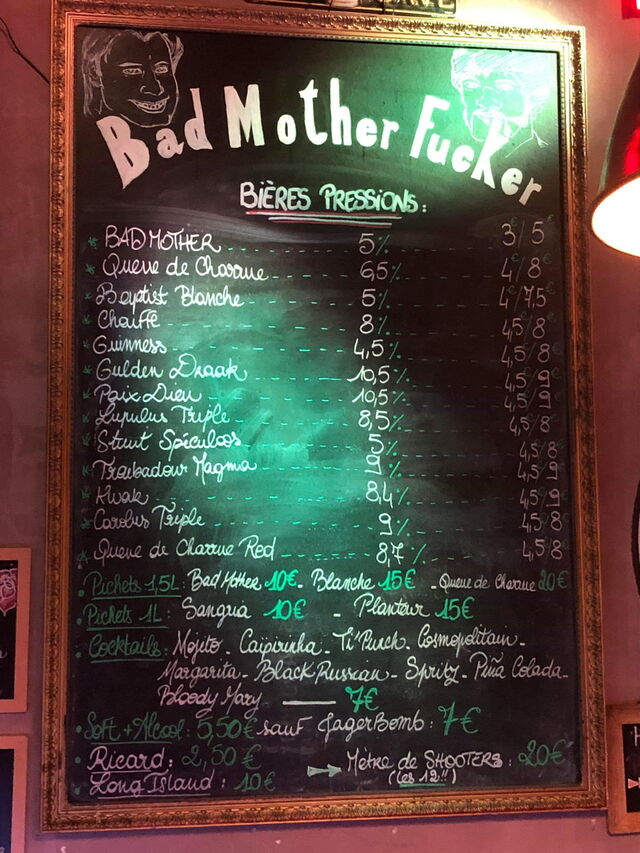 Bad Mother Fucker
BIÈRES PRESSIONS:
* BAD MOTHER 5% 3€/5€
* Queue de Charrue 6,5% 4€/8€
* Baptist Blanche 5% 4€/7,5
* Chouffe 8% 4,5/8€
* Guinness 4,5% 4,5/8€
* Gulden Draak 10,5% 4,5/9€
* Paix Dieu 10,5% 4,5/9€
* Lupulus Triple 8,5% 4,5/8€
* Struit Spéculoos 5% 4,5/8
* Troubadour Magma 9% 4,5/9€
* Kwak 8,4% 4,5/9€
* Carolus Triple 9% 4,5/8€
* Queue de Charrue Red 8,7% 4,5/8
• Pichets 1,5L: Bad Mother 10€ - Blanche 15€ - Queue de Charrue 20€
• Pichets 1L: Sangria 10€ - Planteur 15€
• Cocktails: Mojito - Caipirinha - Ti'Punch - Cosmopolitain -
Margarita - Black Russian - Spritz - Piña Colada -
Bloody Mary 7€
• Soft + Alcool: 5,50€ sauf JagerBomb: 7€
• Ricard: 2,50€ → Mètre de SHOOTERS: 20€
• Long Island: 10€ (les 12!!)